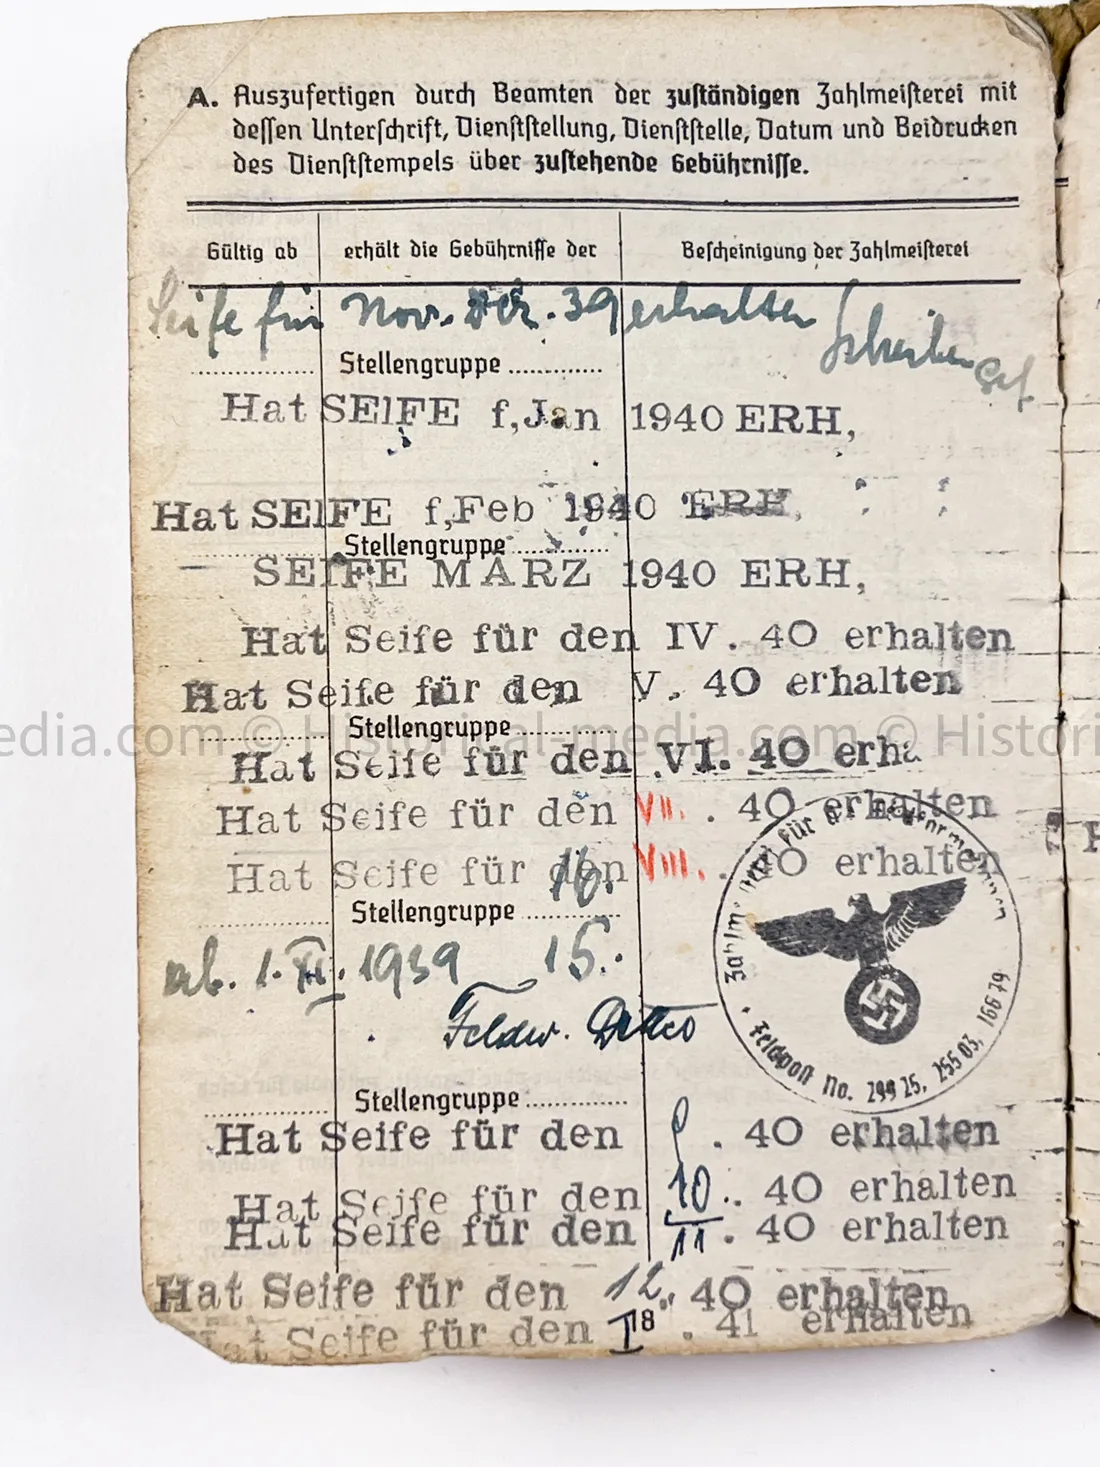 A. Auszufertigen durch Beamten der zuständigen Zahlmeisterei mit
dessen Unterschrift, Dienststellung, Dienststelle, Datum und Beidrucken
des Dienststempels über zustehende Gebührnisse.
Gültig ab erhält die Gebührnisse der Bescheinigung der Zahlmeisterei
Seife für Nov. Dez. 39 erhalten
Stellengruppe
Hat SEIFE f,Jan 1940 ERH,
Hat SEIFE f,Feb 1940 ERH,
Stellengruppe
SEIFE MÄRZ 1940 ERH,
Hat Seife für den IV. 40 erhalten
Hat Seife für den V. 40 erhalten
Stellengruppe
edia.com © Historical-media.com © Histori
Hat Seife für den VI. 40 erha
Hat Seife für den VII. . 40 erhalten
Hat Seife für den VIII. . 40 erhalten
16.
Stellengruppe
ab. 1. 1939 15.
Feldw.
Feldpost No. 299 25, 255 03, 166 79
Stellengruppe
Hat Seife für den 9 . 40 erhalten
Hat Seife für den 10 . 40 erhalten
Hat Seife für den 11 . 40 erhalten
Hat Seife für den 12. . 40 erhalten
Hat Seife für den I 18 . 41 erhalten